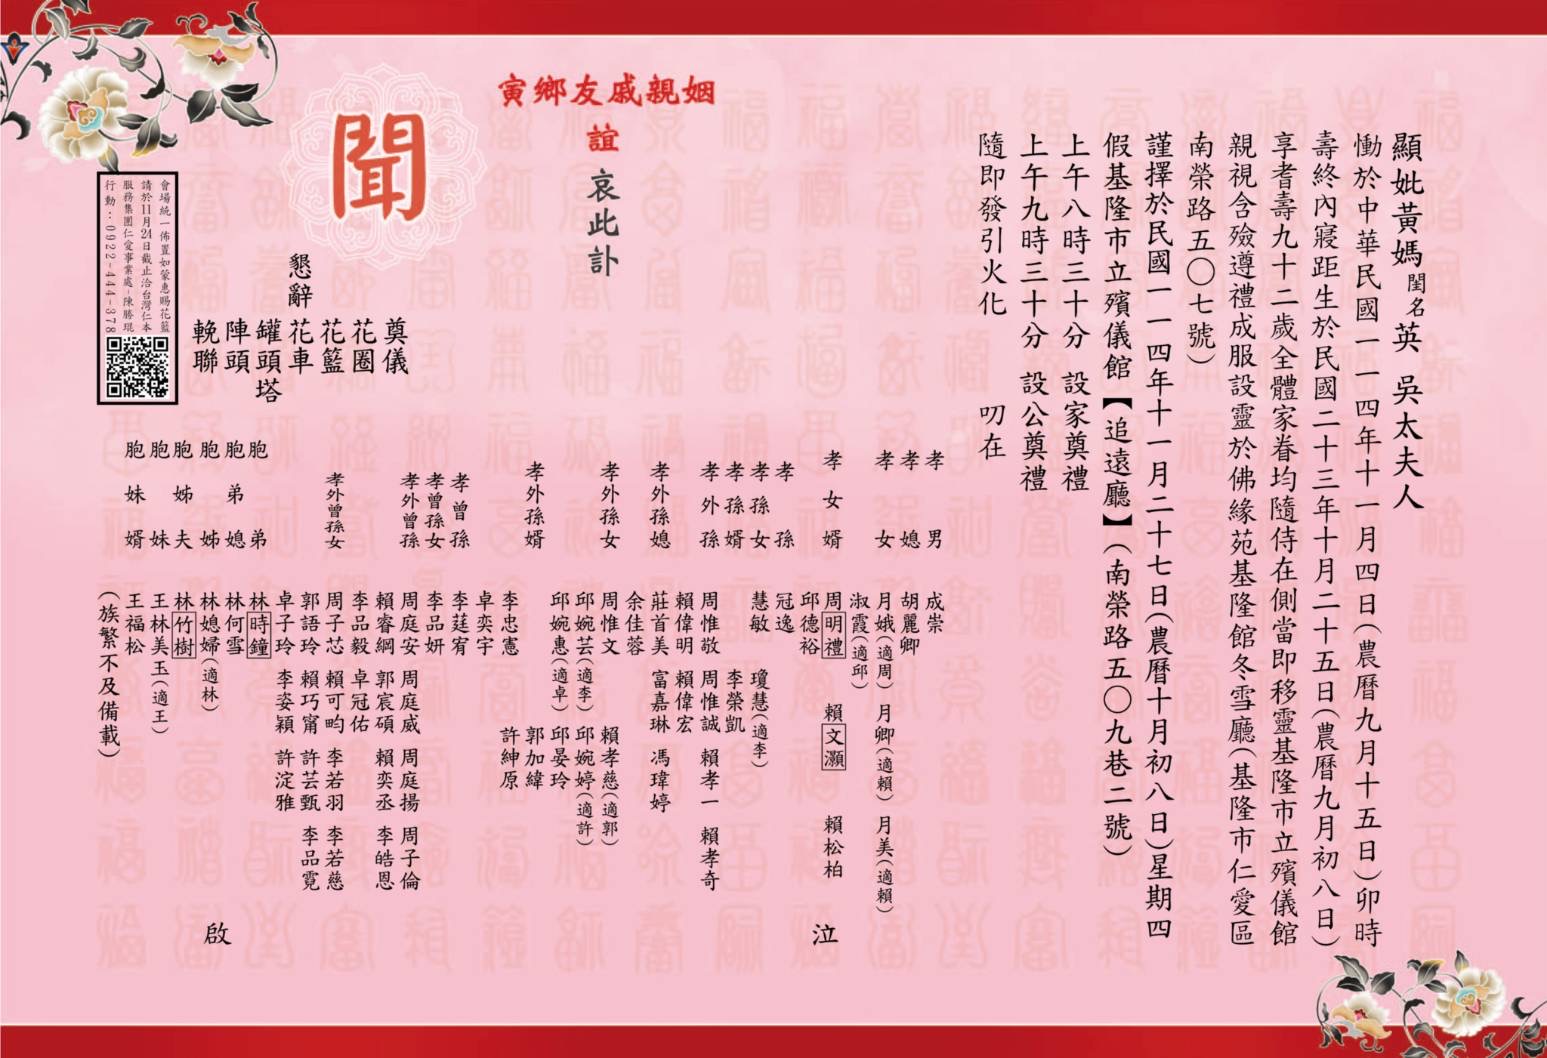 顯妣黃媽閨名英 吳太夫人
慟於中華民國一一四年十一月四日(農曆九月十五日)卯時
壽終內寢距生於民國二十三年十月二十五日(農曆九月初八日)
享耆壽九十二歲全體家眷均隨侍在側當即移靈基隆市立殯儀館
親視含殮遵禮成服設靈於佛緣苑基隆館冬雪廳(基隆市仁愛區
南榮路五〇七號)
謹擇於民國一一四年十一月二十七日(農曆十月初八日)星期四
假基隆市立殯儀館【追遠廳】(南榮路五〇九巷二號)
上午八時三十分 設家奠禮
上午九時三十分 設公奠禮
隨即發引火化 叨在
姻親戚友鄉寅
誼 哀此訃
聞
懇辭
奠儀
花圈
花籃
花車
罐頭塔
陣頭
輓聯
會場統一佈置如蒙惠賜花籃
請於11月24日截止洽台灣仁本
服務集團仁愛事業處-陳勝琨
行動:0922-444-378
孝男 成崇
孝媳 胡麗卿
孝女 月娥(適周) 月卿(適賴) 月美(適賴)
淑霞(適邱)
孝女婿 周明禮 賴文灝 賴松柏
邱德裕
孝孫 冠逸
孝孫女 慧敏 瓊慧(適李)
孝孫婿 李榮凱
孝外孫 周惟敬 周惟誠 賴孝一 賴孝奇
賴偉明 賴偉宏
孝外孫媳 莊首美 富嘉琳 馮瑋婷
余佳蓉
孝外孫女 周惟文 賴孝慈(適郭)
邱婉芸(適李) 邱婉婷(適許)
邱婉惠(適卓) 邱晏玲
孝外孫婿 郭加緯
李忠憲 許紳原
卓奕宇
孝曾孫 李莛宥
孝曾孫女 李品妍
孝外曾孫 周庭安 周庭威 周庭揚 周子倫
賴睿綱 郭宸碩 賴奕丞 李皓恩
李品毅 卓冠佑
孝外曾孫女 周子芯 賴可畇 李若羽 李若慈
郭語玲 賴巧甯 許芸甄 李品霓
卓子玲 李姿穎 許淀雅
胞弟 林時鐘
胞弟媳 林何雪
胞姊 林媳婦(適林)
胞姊夫 林竹樹
胞妹 王林美玉(適王)
胞妹婿 王福松
(族繁不及備載)
泣
啟